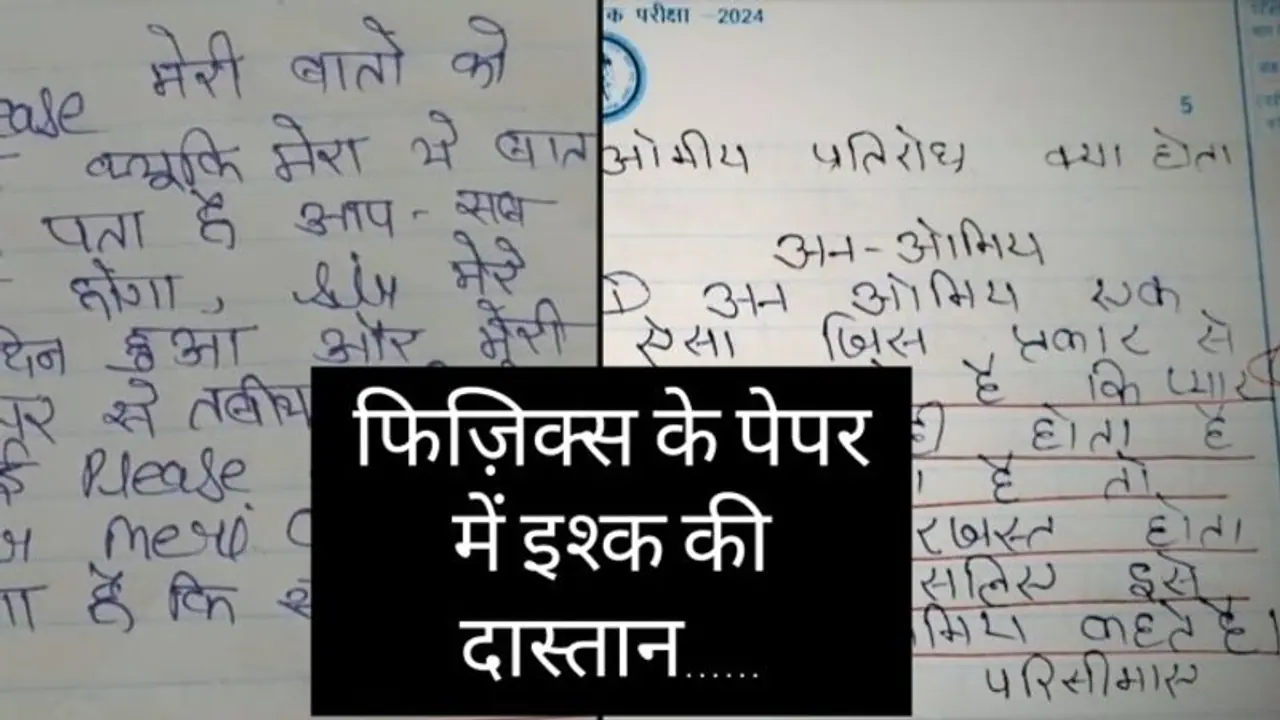 मेरी बातो को
ease
क्यूकि मेरा ये बात
पता है आप - सब
होगा, sir मेरे
हुआ और मेरी
से तबीय
Please
meri
है कि
क परीक्षा - 2024
5
ओमीय प्रतिरोध क्या होता
अन - ओमिय
1) अन ओमिय एक
ऐसा जिस प्रकार से
है कि प्यार
होता है
है तो
रजस्त होता
सलिए इसे
मिय कहते है।
परिसीमाए
फिज़िक्स के पेपर
में इश्क की
दास्तान......